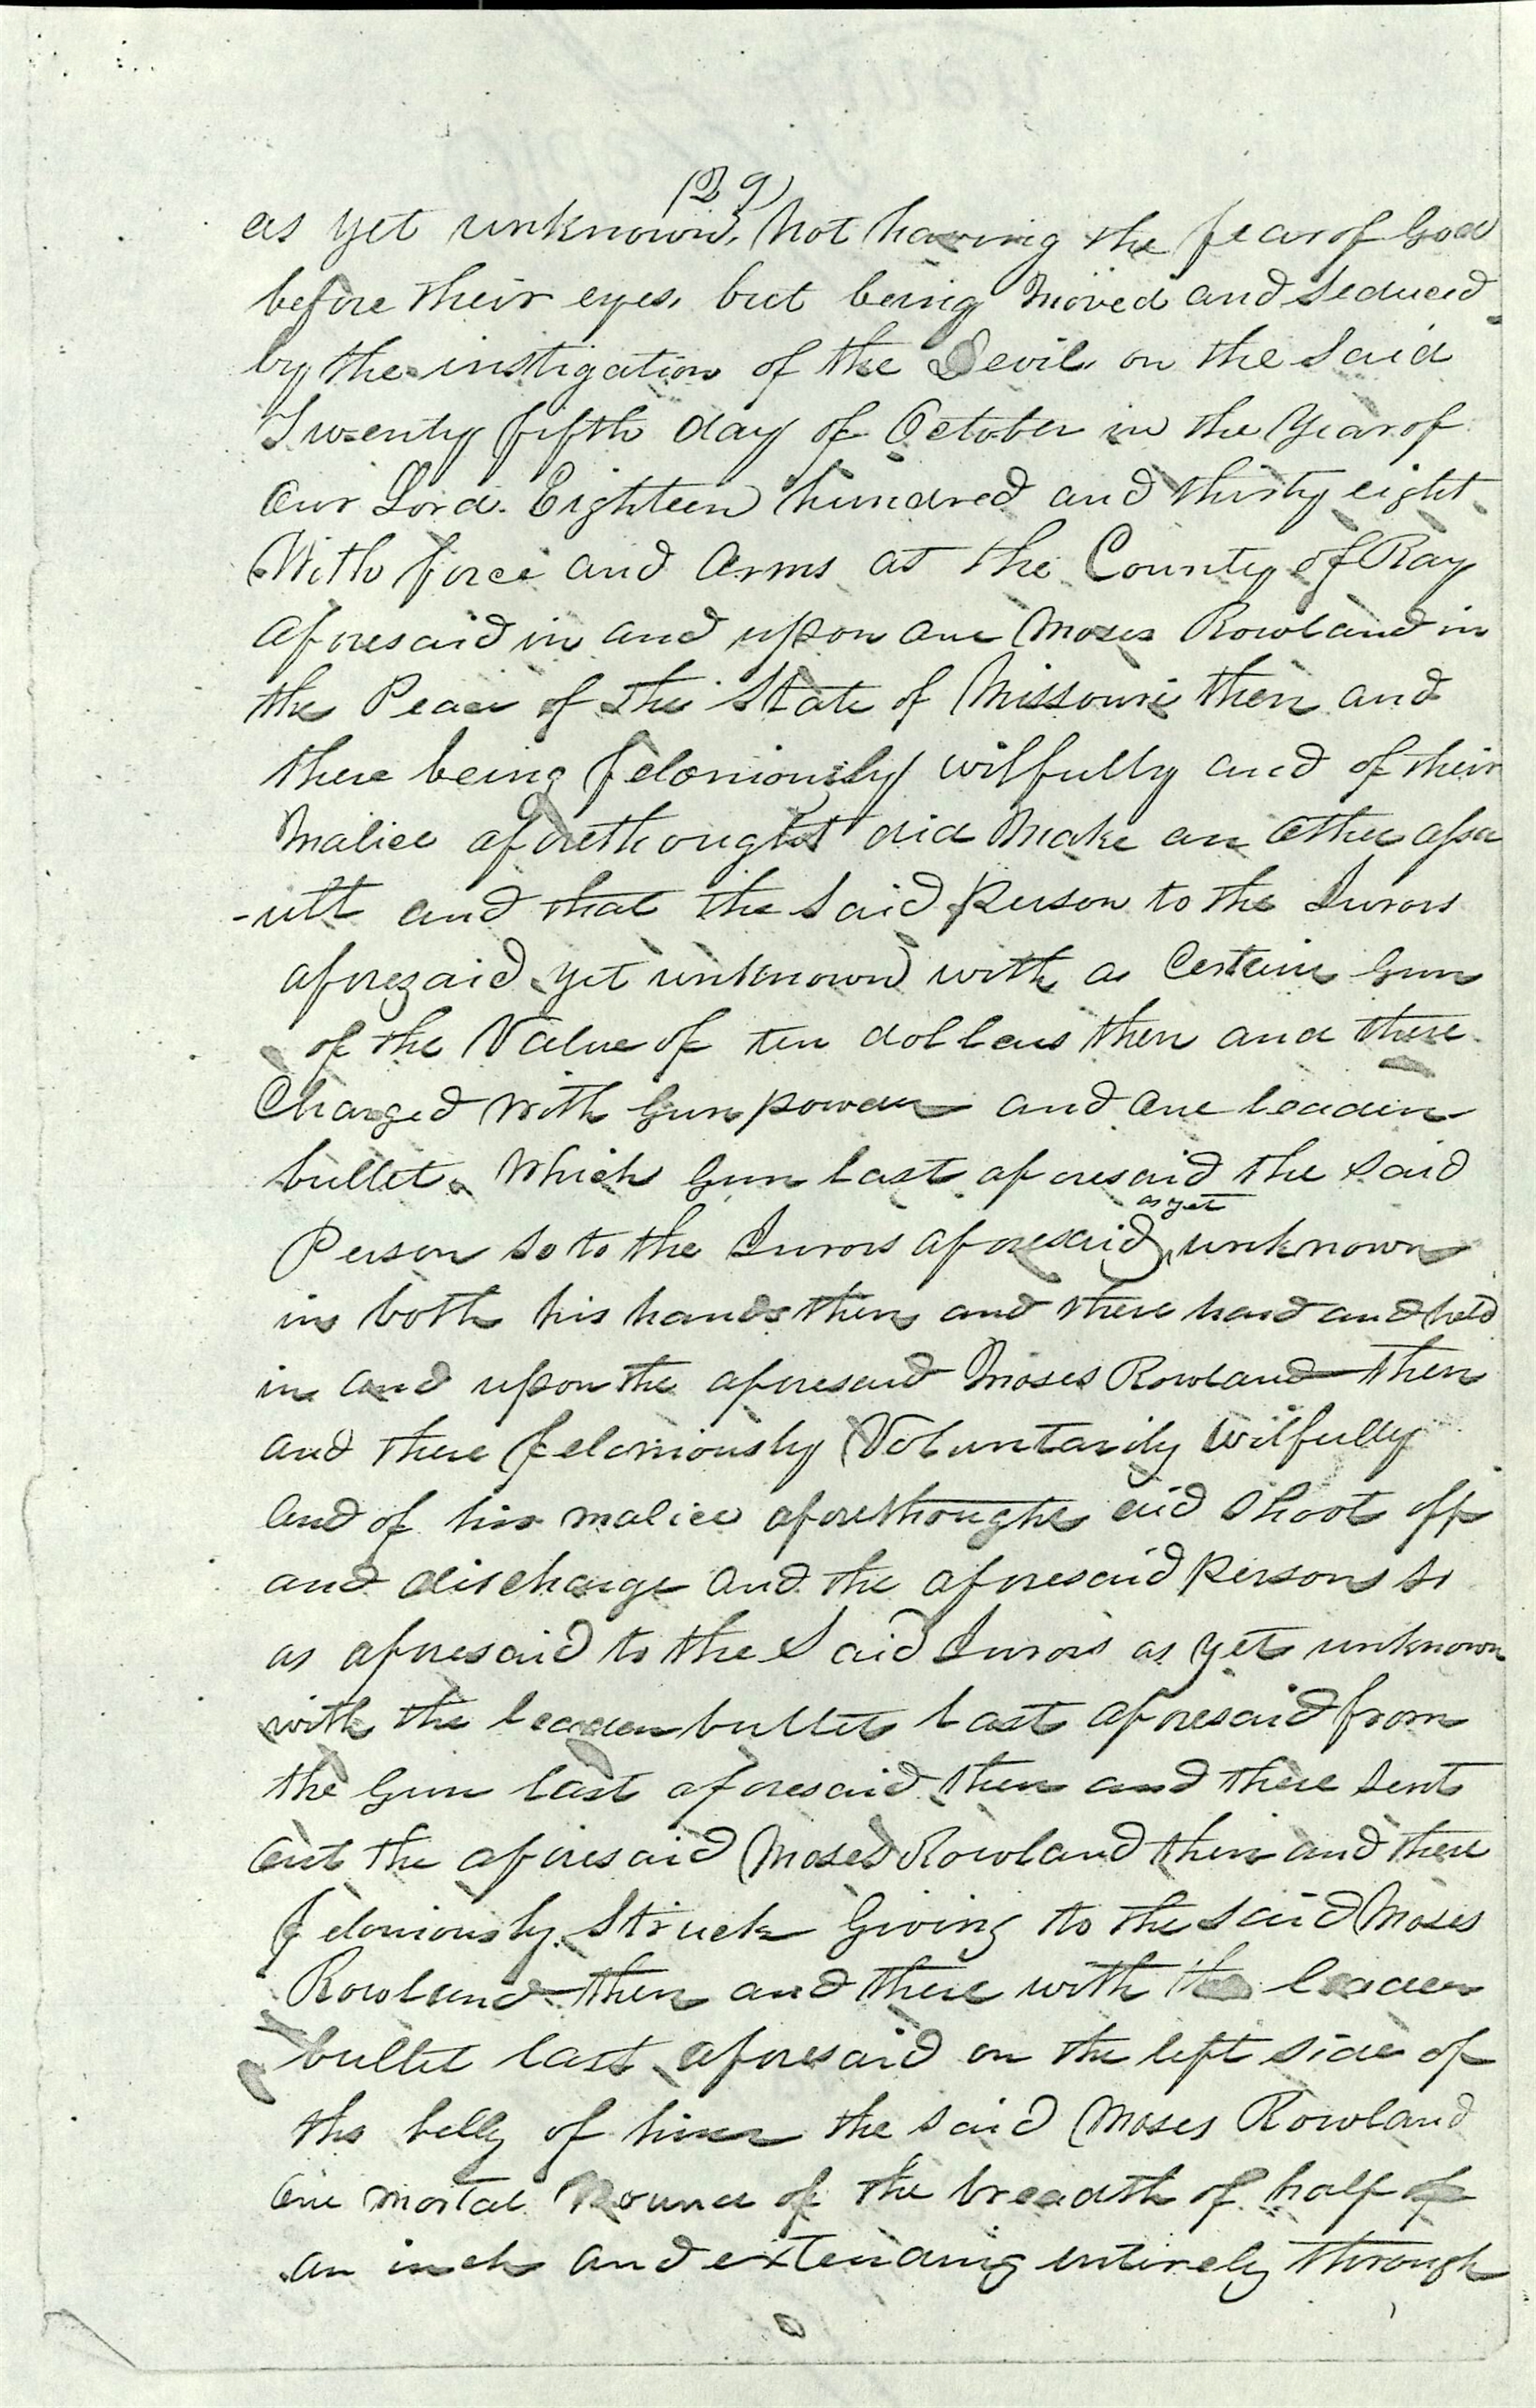 (29)
as yet unknown, Not having the fear of God
before their eyes, but being moved and seduced
by the instigation of the Devil, on the said
Twenty fifth day of October in the Year of
Our Lord. Eighteen hundred and thirty eight.
With force and Arms at the County of Ray
aforesaid in and upon one Moses Rowland in
the Peace of the State of Missouri then and
there being feloniously wilfully and of their
Malice aforethought did Make an other assa
-ult and that the said Person to the Jurors
aforesaid yet unknown with a Certain Gun
of the Value of ten dollars then and there
Charged with Gun powder and one leaden
bullet. Which Gun last aforesaid the said
as yet
Person so to the Jurors aforesaid, unknown
in both his hands then and there had and held
in and upon the aforesaid Moses Rowland then
and there feloniously Voluntarily wilfully
and of his malice aforethought did shoot off
and discharge and the aforesaid Persons so
as aforesaid to the Said Jurors as yet unknown
with the leaden bullet last aforesaid from
the Gun last aforesaid then and there sent
out the aforesaid Moses Rowland then and there
feloniously Struck Giving to the said Moses
Rowland then and there with the leaden
bullet last aforesaid on the left side of
the belly of him the said Moses Rowland
One mortal Wound of the breadth of half of
an inch and extending entirely through